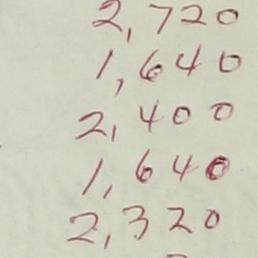 2,720
1,640
2,400
1,640
2,320